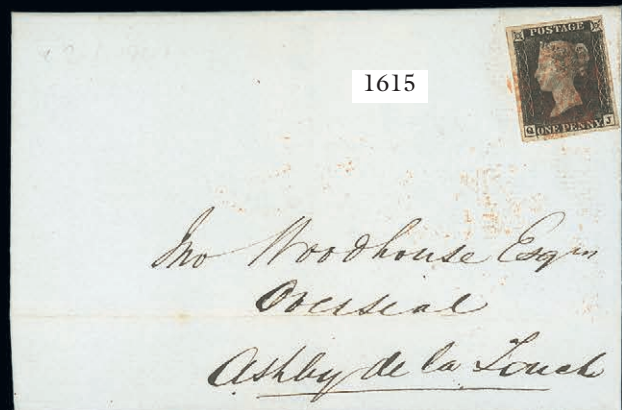 POSTAGE
Q ONE PENNY J
1615
Jno Woodhouse Esqre
Overseal
Ashby de la Zouch